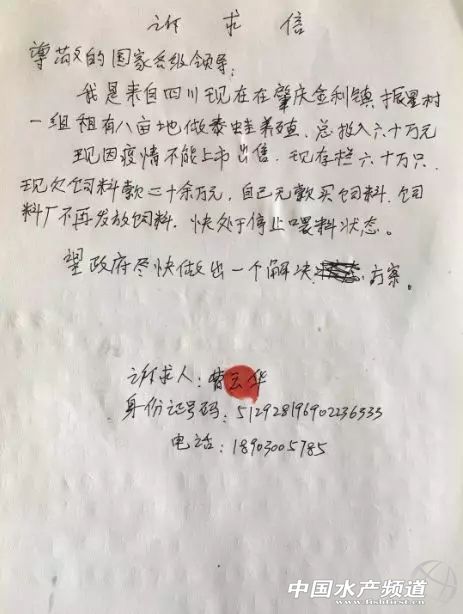 诉求信
尊敬的国家各级领导:
我是来自四川现在在肇庆金利镇振星村
一组租有八亩地做泰蛙养殖、总投入六十万元
现因疫情不能上市出售、现存栏六十万只、
现欠饲料款二十余万元，自己无款买饲料、饲
料厂不再发放饲料、快处于停止喂料状态。
望政府尽快做出一个解决方案。
诉求人:曹云华
身份证号码:512928196902236333
电话:18903005785
中国水产频道
www.fishfirst.cn